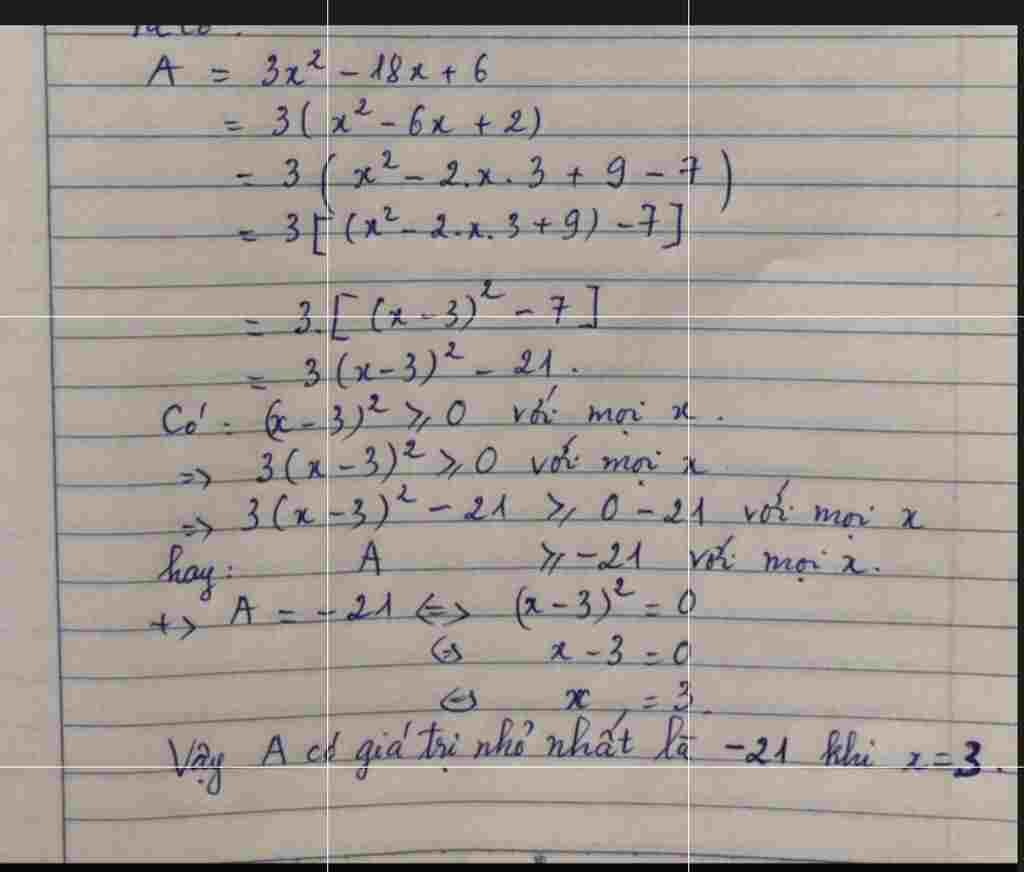 A = 3x² - 18x + 6
= 3( x² - 6x + 2)
= 3 ( x² - 2.x.3 + 9 - 7 )
= 3 [ (x² - 2.x.3 + 9) - 7 ]
= 3.[ (x - 3)² - 7 ]
= 3 (x - 3)² - 21.
Có : (x - 3)² ⩾ 0 với mọi x.
=> 3(x - 3)² ⩾ 0 với mọi x
=> 3(x - 3)² - 21 ⩾ 0 - 21 với mọi x
hay: A ⩾ -21 với mọi x.
+> A = -21 <=> (x - 3)² = 0
<=> x - 3 = 0
<=> x = 3.
Vậy A có giá trị nhỏ nhất là -21 khi x = 3.